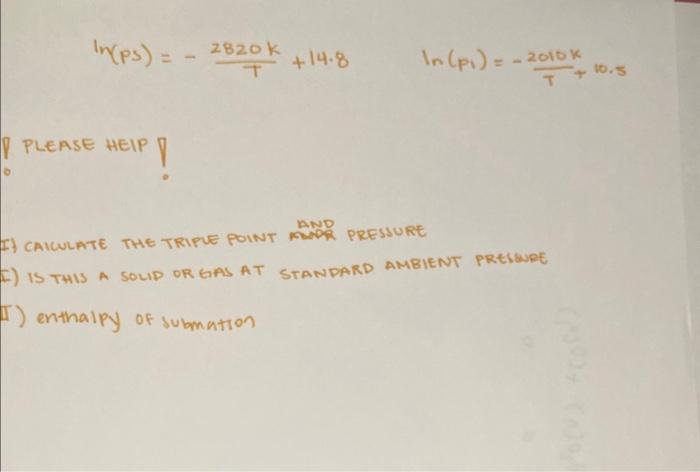 ln(ps) = - 2820 K / T + 14.8
ln(p1) = - 2010 K / T + 10.5
! PLEASE HElP !
I) CAlCULATE THE TRIPLE POINT AND PRESSURE
I) IS THIS A SOLID OR GAS AT STANDARD AMBIENT PRESSURE
I) enthalpy OF submation